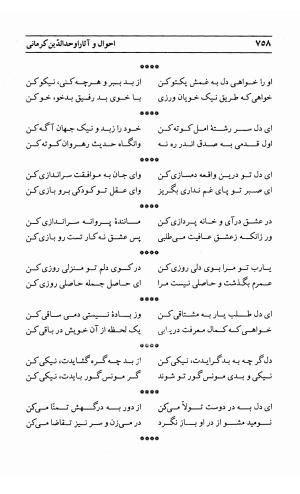 ۷۵۸ احوال و آثار اوحدالدّین کرمانی
****
او را خواهی دل به غمش یکتو کن از بد ببر و هرچه کنی، نیکو کن
خواهی که طریق نیک خویان ورزی با خوی بد رفیق بدخود، خو کن
****
ای دل سر رشتهٔ امل کوته کن خود را زبد و نیک جهان آگه کن
اول قدمی به صدق اندر ره نه وانگاه حدیث رهروان کوته کن
****
ای دل تو درین واقعه دمسازی کن وای جان به موافقت سراندازی کن
ای صبر تو پای غم نداری بگریز وای عقل تو کودکی برو بازی کن
****
در عشق درآی و خانه پردازی کن مانندهٔ پروانه سراندازی کن
ور زانکه زعشق عافیت می‌طلبی پس عشق نه کار تست رو بازی کن
****
یارب تو مرا بوی دلی روزی کن در کوی دلم تو منزلی روزی کن
عمرم بگذشت و حاصلی نیست مرا ای حاصل جمله حاصلی روزی کن
****
ای دل طلب یار به مشتاقی کن وز بادهٔ نیستی دمی ساقی کن
خواهی که کمال معرفت دریابی یک لحظه از آن خویش در باقی کن
****
دل گر چه به بد گرایدت، نیکی کن از بد چه گره گشایدت، نیکی کن
نیکی و بدی مونس گور تو شوند گر مونس گور بایدت، نیکی کن
****
ای دل به در دوست تولّا می‌کن از دور به درگهش تمنّا می‌کن
نومید مشو از در او باز نگرد در می‌زن و سر نیز تقاضا می‌کن
****